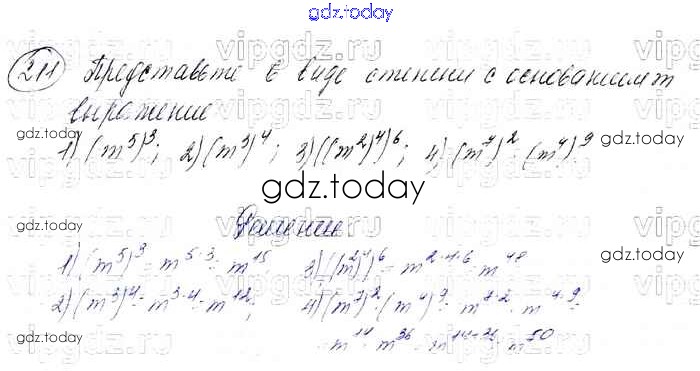 gdz.today
211 Представьте в виде степени с основанием m
выражение
1) (m^5)^3; 2) (m^3)^4; 3) ((m^2)^4)^6; 4) (m^7)^2 · (m^4)^9
gdz.today
Решение
1) (m^5)^3 = m^{5·3} = m^{15} 3) ((m^2)^4)^6 = m^{2·4·6} = m^{48}
2) (m^3)^4 = m^{3·4} = m^{12}; 4) (m^7)^2 · (m^4)^9 = m^{7·2} · m^{4·9} =
= m^{14} · m^{36} = m^{14+36} = m^{50}
vipgdz.ru
gdz.today